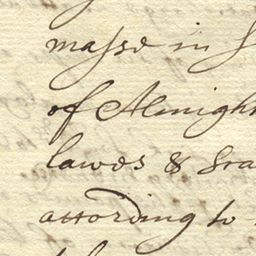 made in
of Almight
lawes & sta
according to